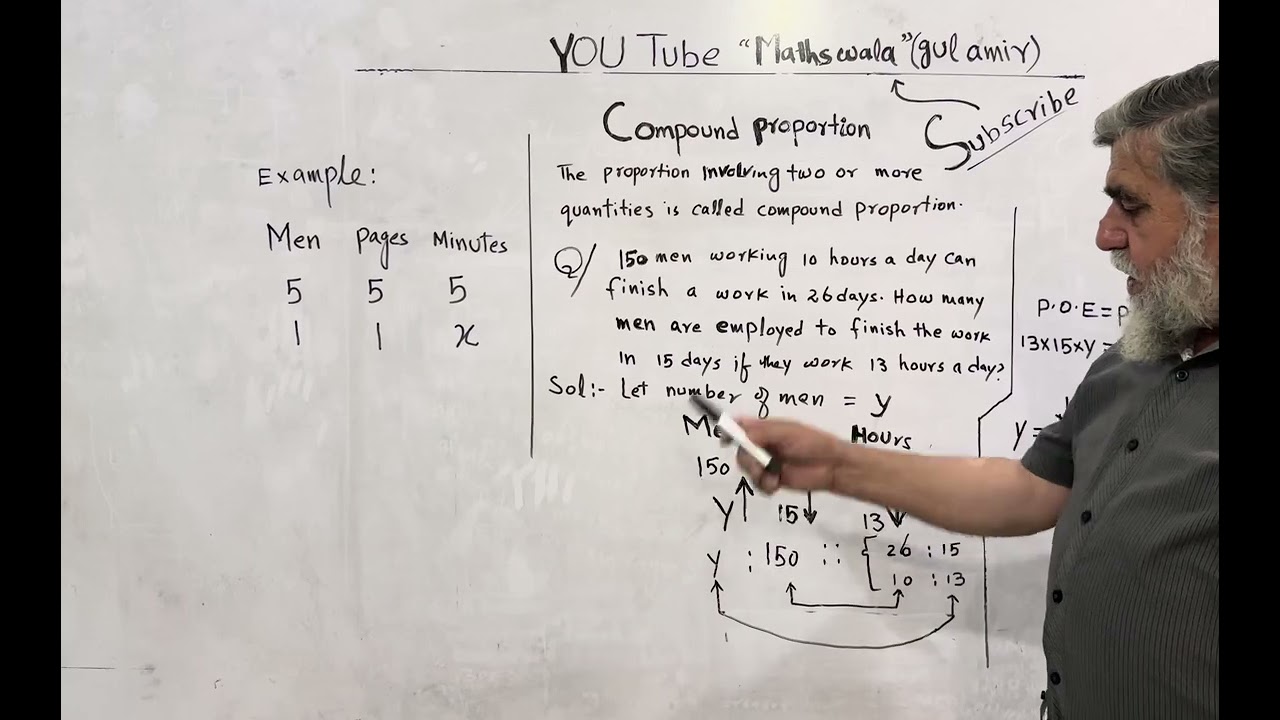 YOU Tube "Mathswala" (gul amir)
Subscribe
Compound proportion
The proportion involving two or more
quantities is called compound proportion.
Example:
Men pages Minutes
5 5 5
1 1 x
Q/ 150 men working 10 hours a day can
finish a work in 26 days. How many
men are employed to finish the work
in 15 days if they work 13 hours a day?
Sol:- Let number of men = y
Hours
150
Y 15 13
y : 150 :: { 26 : 15
10 : 13
P.O.E =
13x15xy =
y =